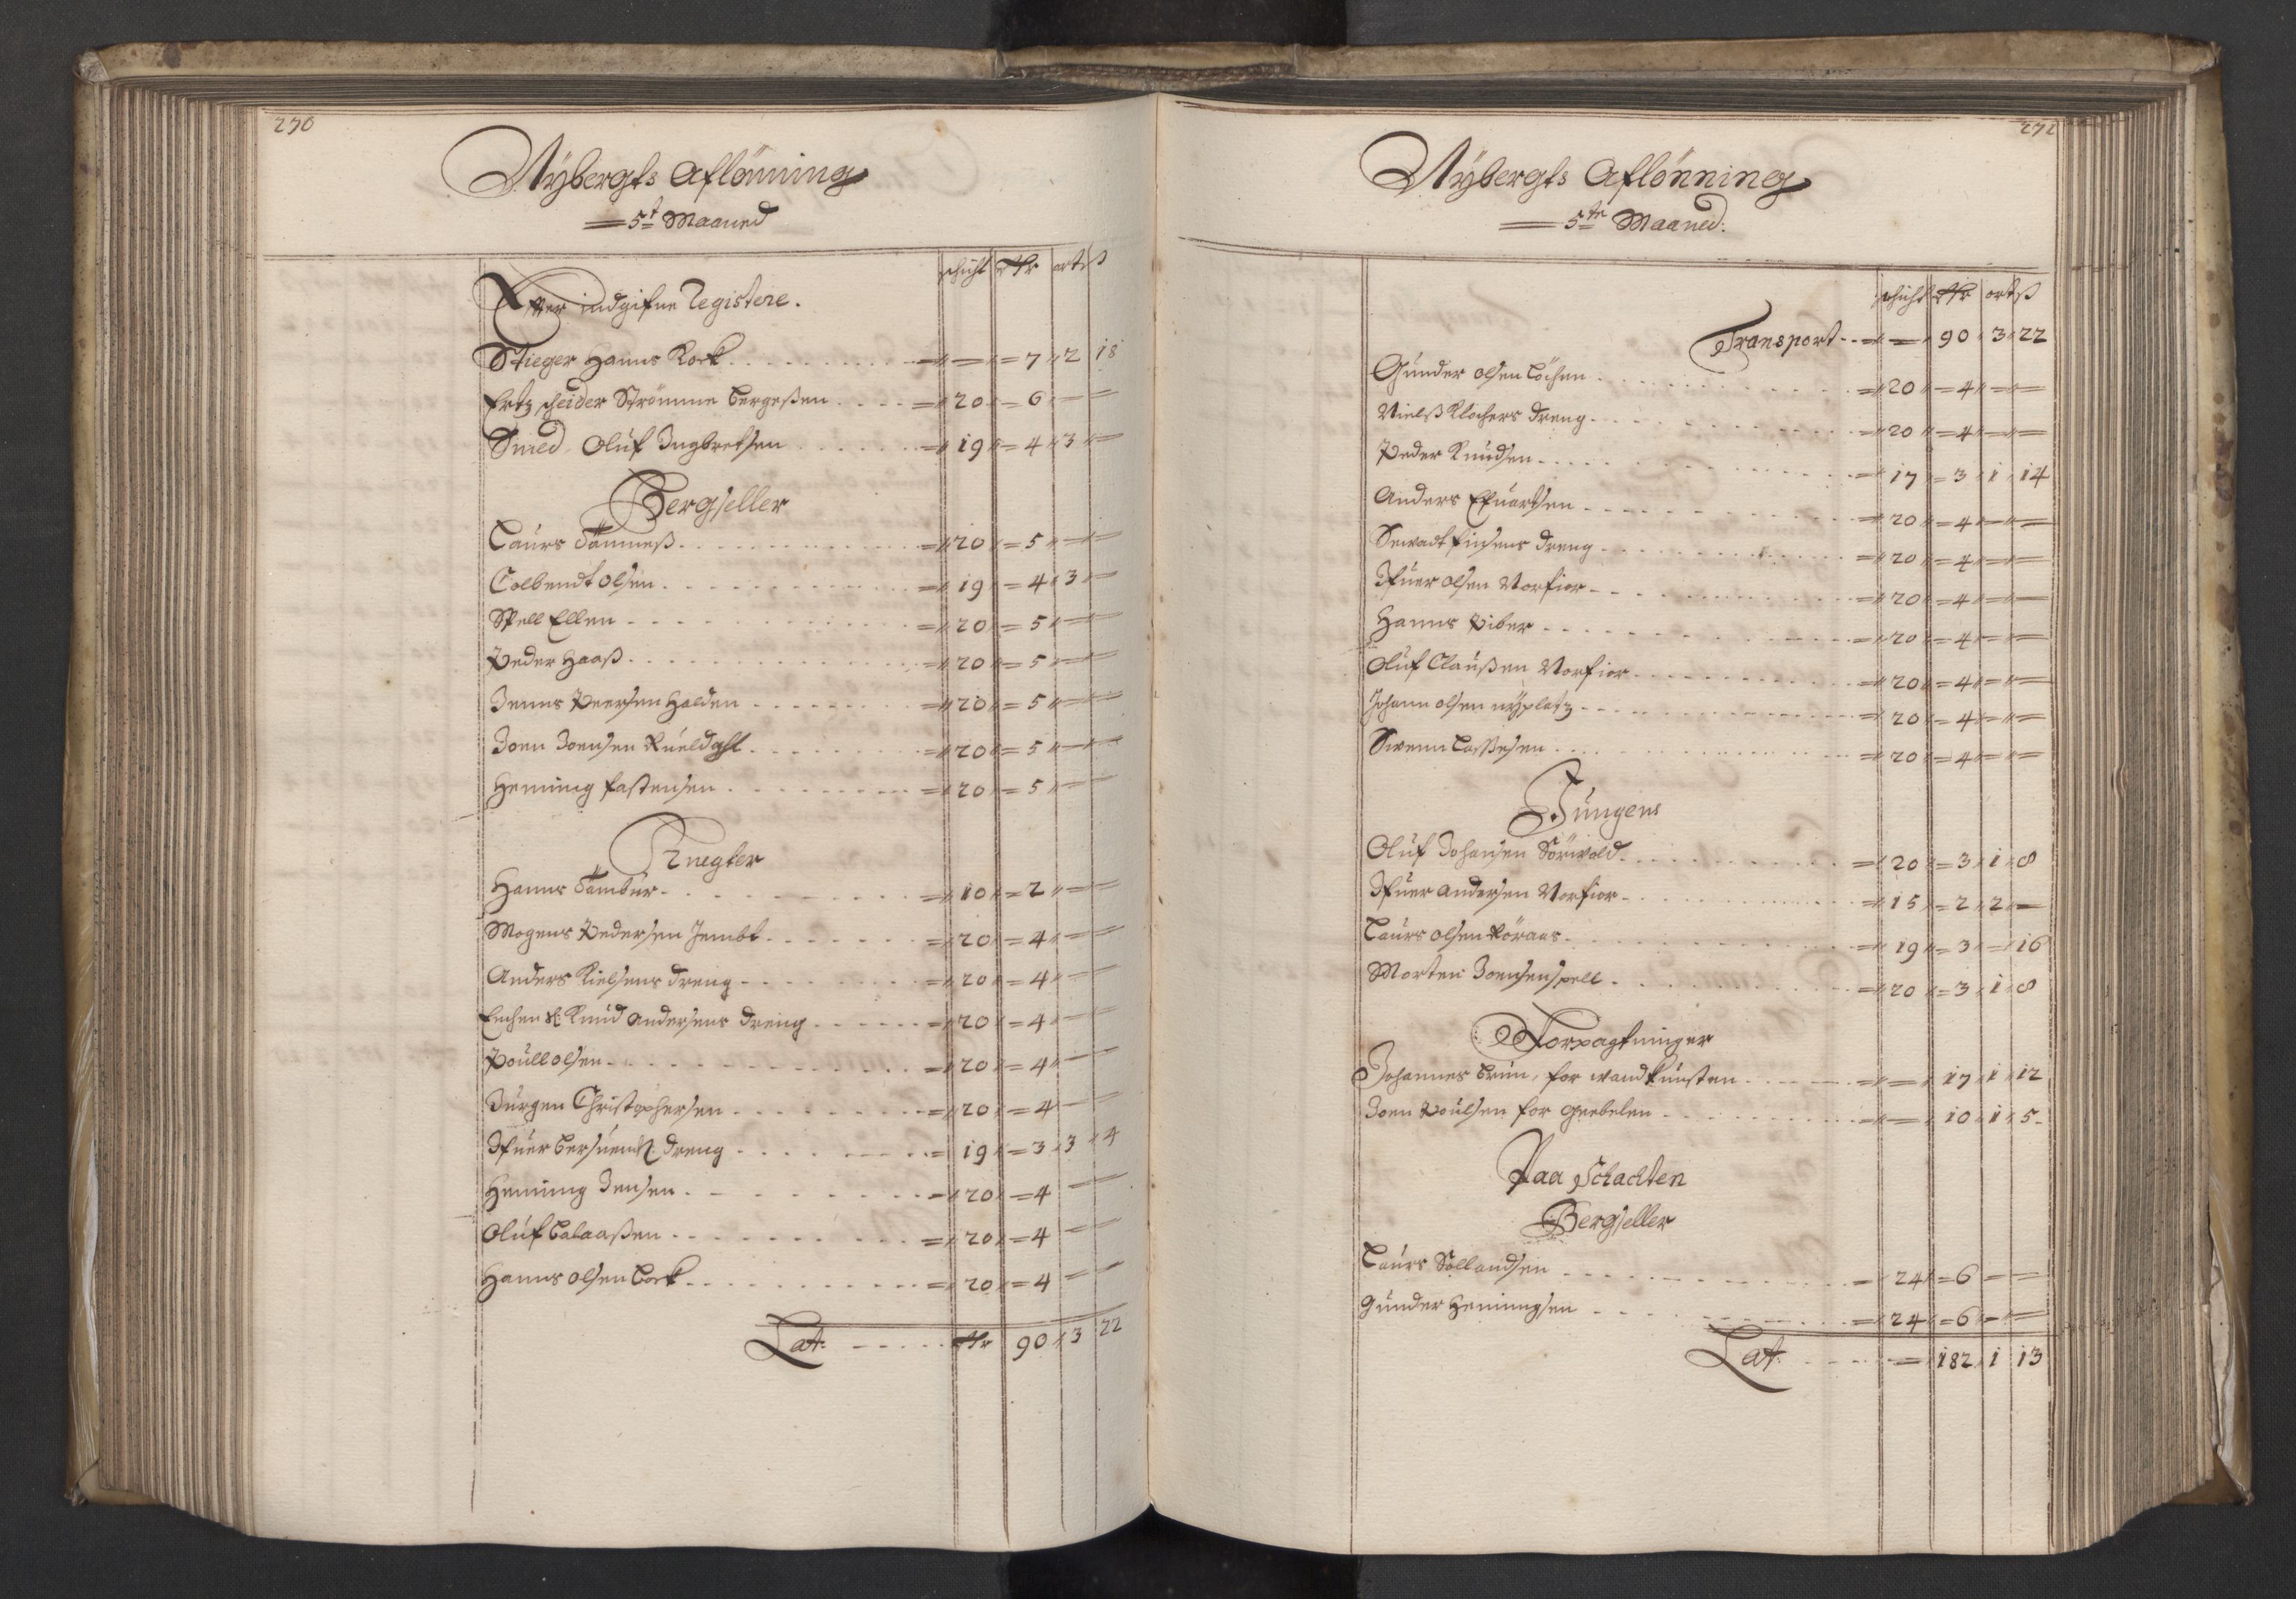 270
Nÿbergts Aflönning
5t Maaned
schicht Rdr ort ß
Efter indgifne Registere.
Stieger Hanns Kock - - - 7 2 18
Ertz scheider Strömme Bergeßen - 20 6 - -
Smed Oluf Ingbretsen - 19 4 3 -
Bergseller
Laurs Tönneß - 20 5 - -
Colbendt Olsen - 19 4 3 -
Spell Ellen - 20 5 - -
Peder Haaß - 20 5 - -
Jenns Peersen Halden - 20 5 - -
Joen Joensen Kueldahl - 20 5 - -
Heming Fastensen - 20 5 - -
Knegter
Hanns Tambur - 10 2 - -
Mogens Pedersen Jembt - 20 4 - -
Anders Nielsens dreng - 20 4 - -
Enchen Sl: Knud Andersens dreng - 20 4 - -
Poull Olsen - 20 4 - -
Jürgen Christophersen - 20 4 - -
Ifuer dreng - 19 3 3 4
Heming Jensen - 20 4 - -
Oluf Calaaßen - 20 4 - -
Hanns Olsen Cock - 20 4 - -
Lat: - Rdr 90 3 22
271
Nÿbergts Aflönning
5te Maaned:
schicht Rdr ort ß
Transport - - 90 3 22
Gunder Olsen Löchen - 20 4 - -
Nielß Klochers dreng - 20 4 - -
Peder Knudsen - 17 3 1 14
Anders Efuartsen - 20 4 - -
Sewadt Finsens dreng - 20 4 - -
Ifuer Olsen Storfior - 20 4 - -
Hanns Piber - 20 4 - -
Oluf Claußen Storfior - 20 4 - -
Johann Olsen nÿplatz - 20 4 - -
Swenn Laßesen - 20 4 - -
Jungens
Oluf Johansen Sörwold - 20 3 1 8
Ifuer Andersen Storfior - 15 2 2 -
Laurs Olsen Röraas - 19 3 - 16
Morten Joensen Spell - 20 3 1 8
Forpagtninger
Johannes Brun, for wandkunsten - - 17 1 12
Joen Poulsen for Geebelen - - 10 1 5
Paa Schachten
Bergseller
Laurs Sollandsen - 24 6 - -
Gunder Hemingsen - 24 6 - -
Lat: - - 182 1 13